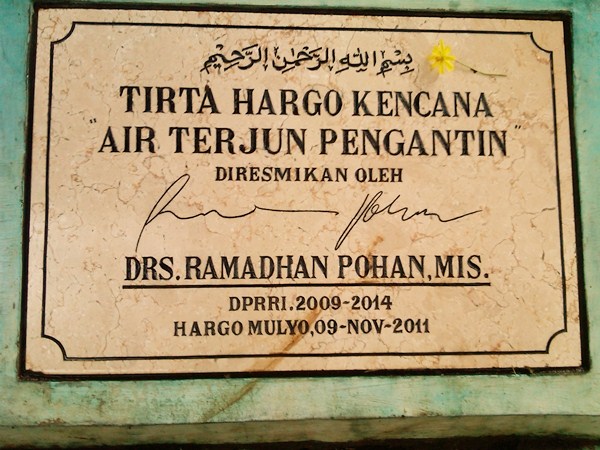 بِسْمِ اللهِ الرَّحْمٰنِ الرَّحِيْمِ
TIRTA HARGO KENCANA
"AIR TERJUN PENGANTIN"
DIRESMIKAN OLEH
DRS.RAMADHAN POHAN,MIS.
DPRRI.2009-2014
HARGO MULYO,09-NOV-2011